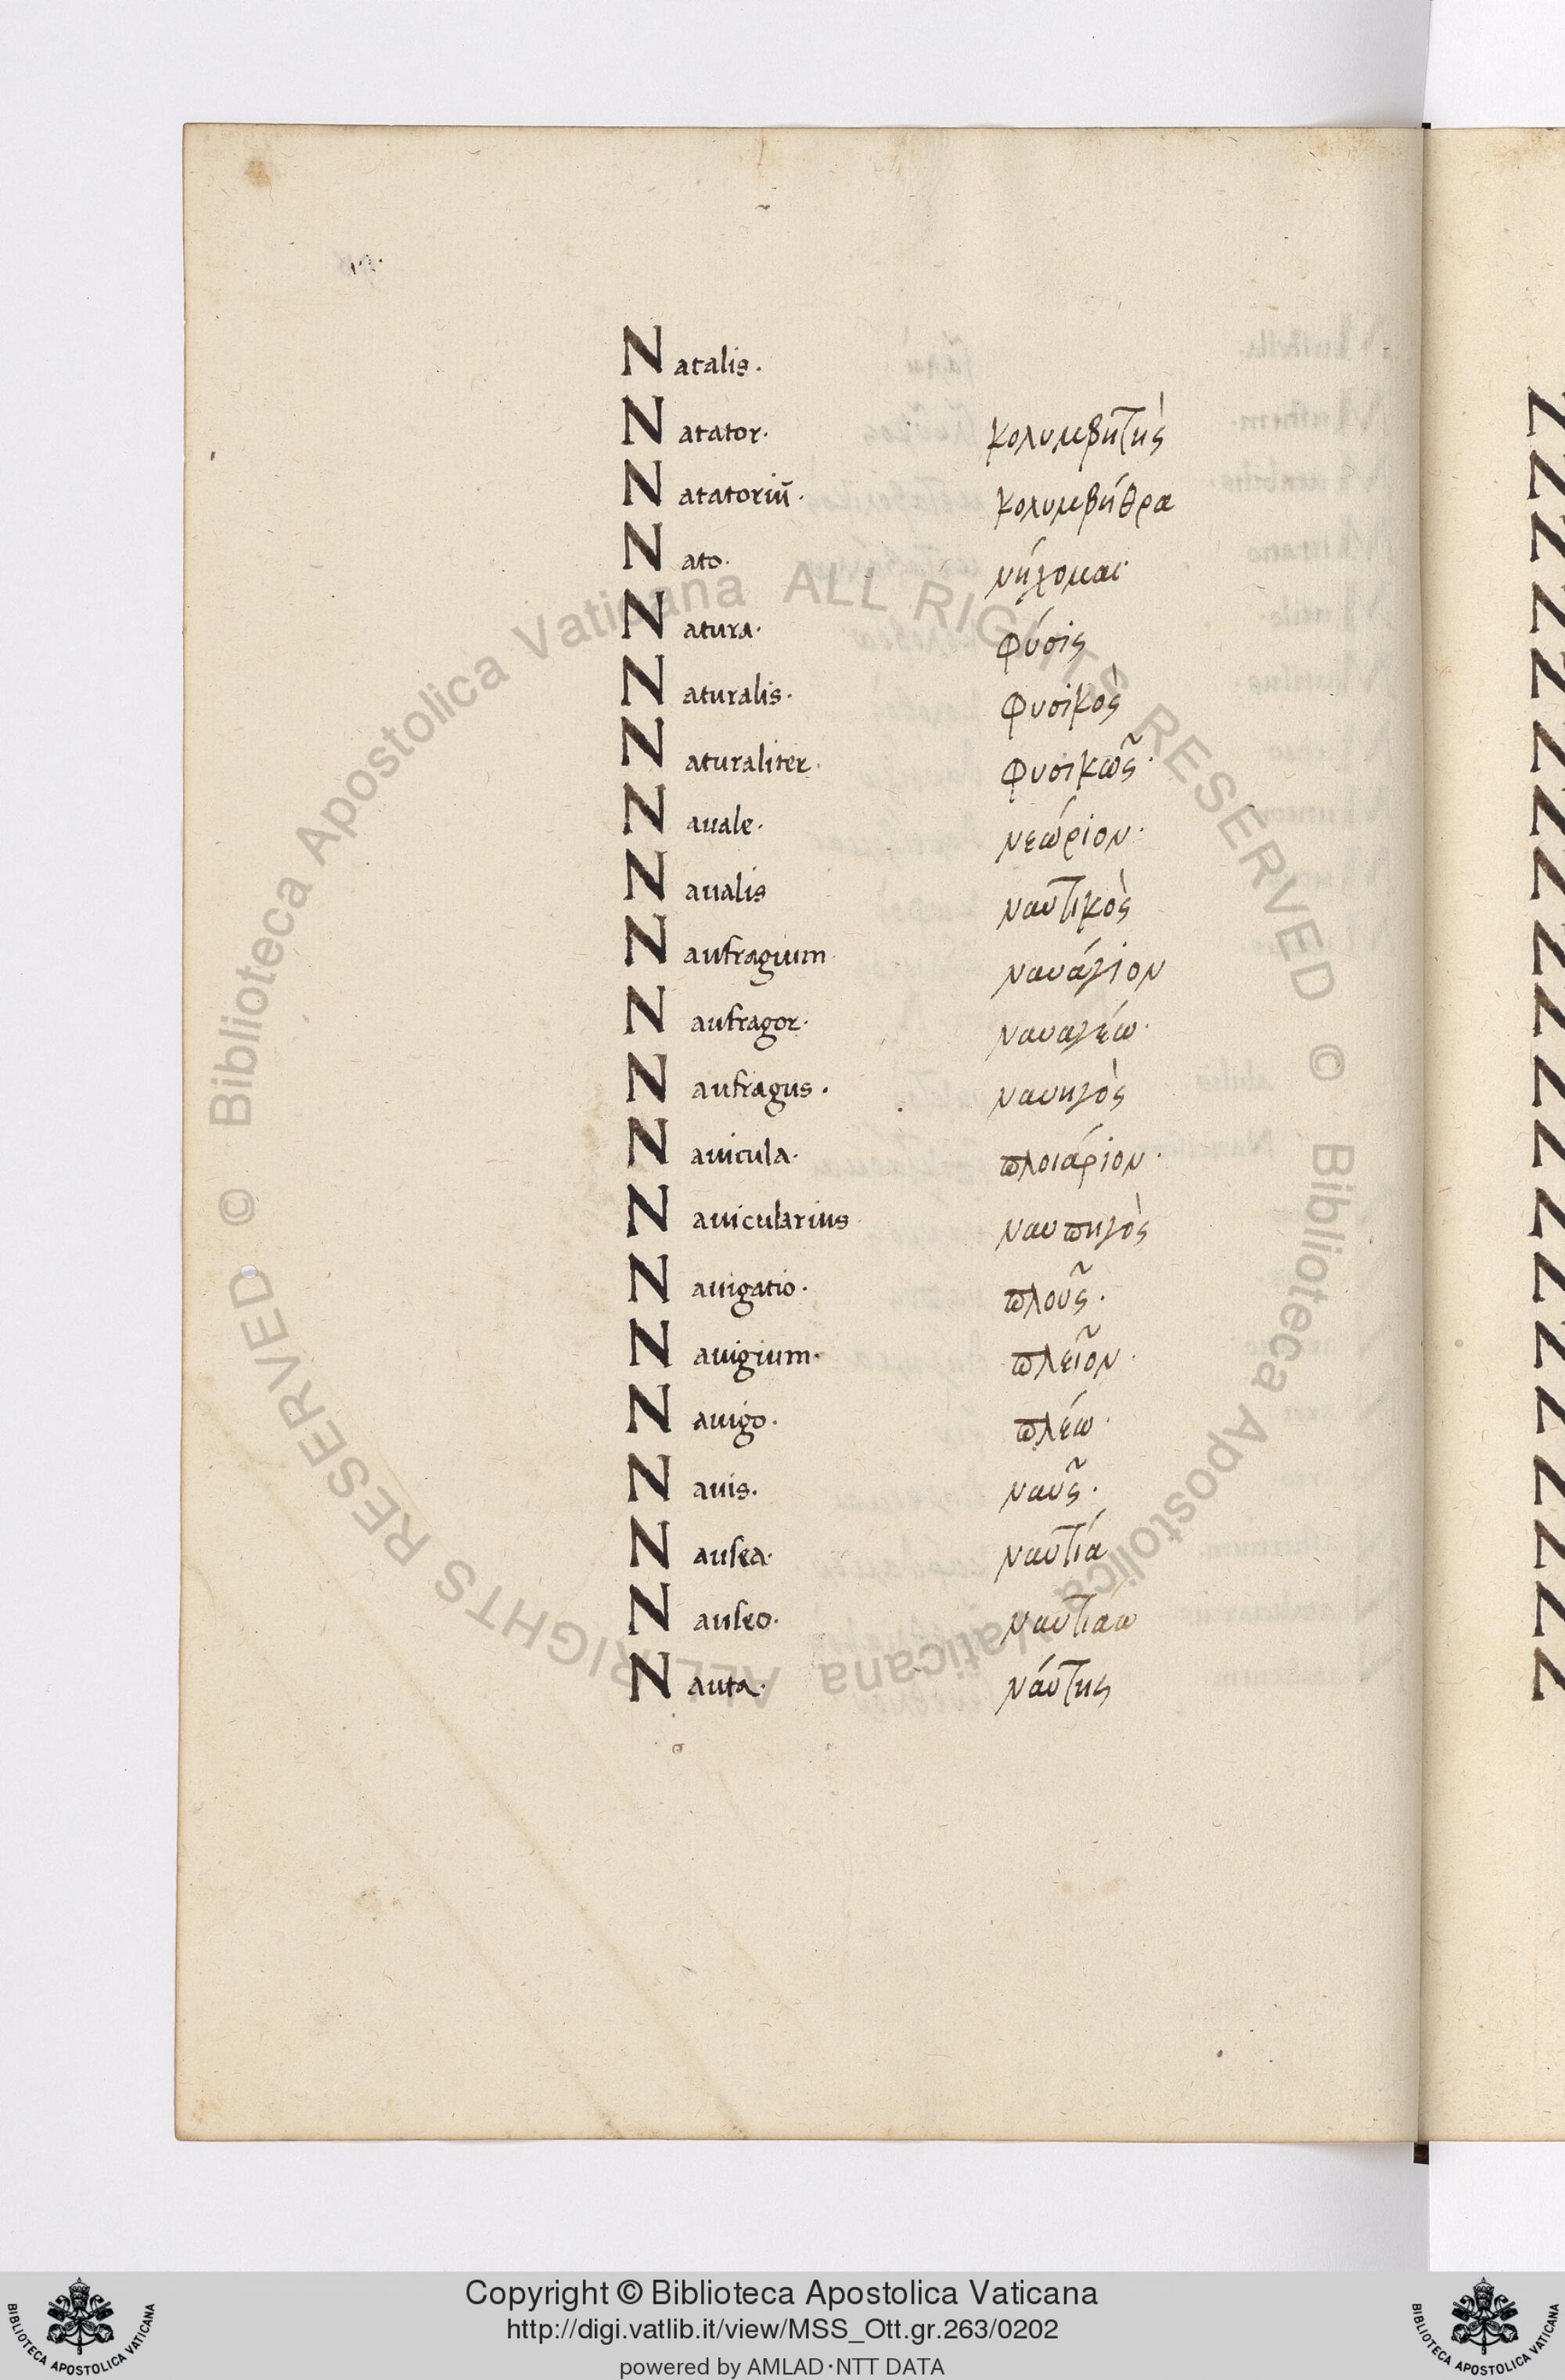 Natalis.
Natator. κολυμβητὴς
Natatoriū. κολυμβήθρα
Nato. νήχομαι
Natura. φύσις
Naturalis. φυσικὸς
Naturaliter. φυσικῶς.
Nauale. νεώριον.
Naualis ναυτικὸς
Naufragium. ναυάγιον
Naufragor. ναυαγέω.
Naufragus. ναυηγὸς
Nauicula. πλοιάριον.
Nauicularius ναυπηγὸς
Nauigatio. πλοῦς.
Nauigium. πλεῖον.
Nauigo. πλέω.
Nauis. ναῦς.
Nausea. ναυτία
Nauseo. ναυτιάω
Nauta. νάυτης
© Biblioteca Apostolica Vaticana ALL RIGHTS RESERVED © Biblioteca Apostolica Vaticana ALL RIGHTS RESERVED
Copyright © Biblioteca Apostolica Vaticana
http://digi.vatlib.it/view/MSS_Ott.gr.263/0202
powered by AMLAD·NTT DATA
BIBLIOTECA APOSTOLICA VATICANA
BIBLIOTECA APOSTOLICA VATICANA